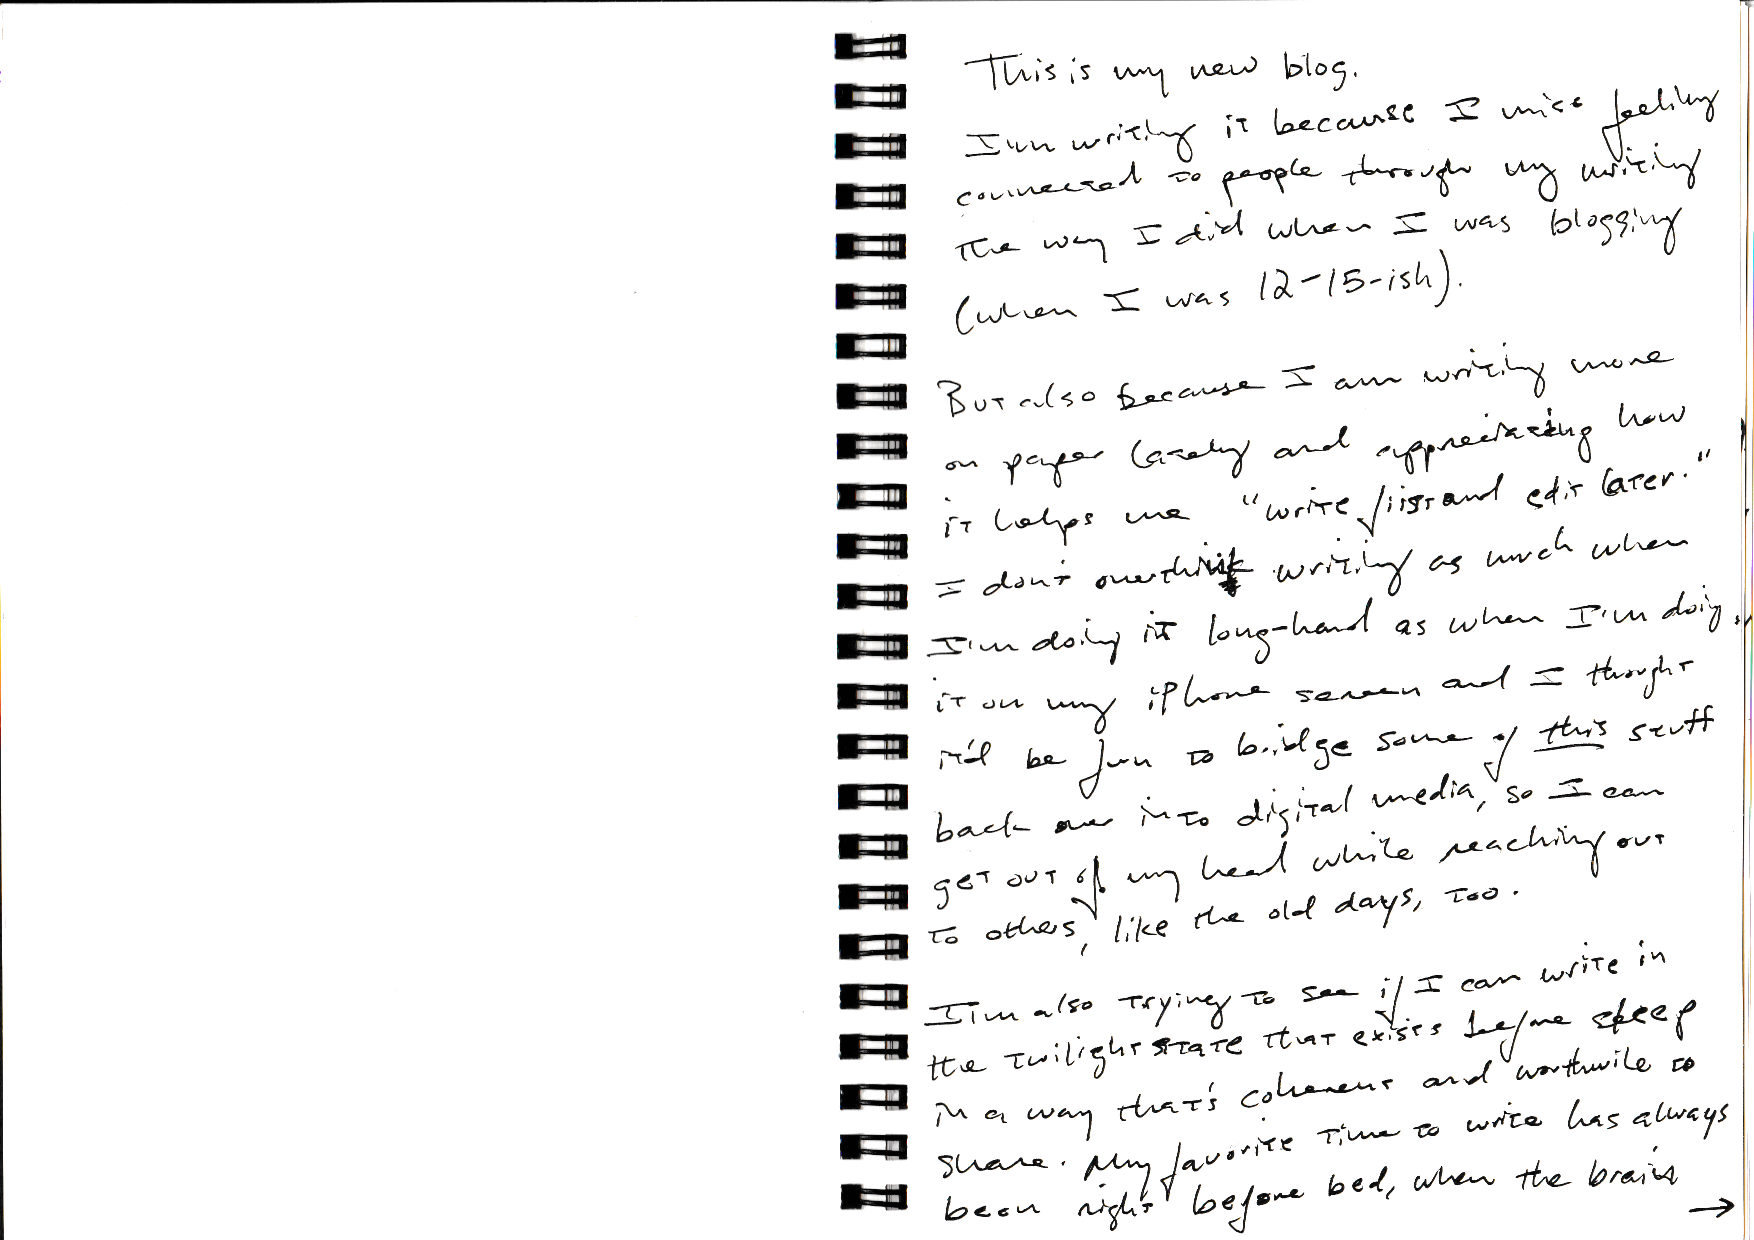 This is my new blog.
I'm writing it because I miss feeling
connected to people through my writing
the way I did when I was blogging
(when I was 12-15-ish).
But also because I am writing more
on paper lately and appreciating how
it helps me "write first and edit later."
I don't overthink writing as much when
I'm doing it long-hand as when I'm doing
it on my iPhone screen and I thought
it'd be fun to bridge some of this stuff
back over into digital media, so I can
get out of my head while reaching out
to others, like the old days, too.
I'm also trying to see if I can write in
the twilight state that exists before sleep
in a way that's coherent and worthwile to
share. My favorite time to write has always
been right before bed, when the brain's
→